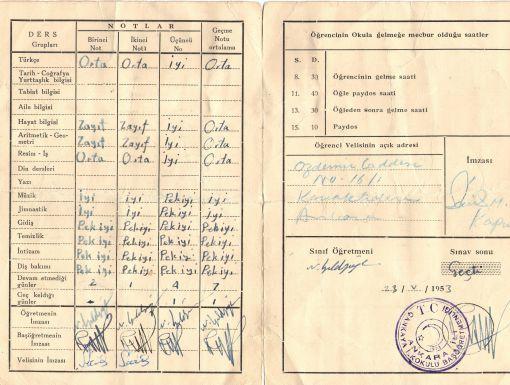 DERS Grupları
NOTLAR
Birinci Not. İkinci Not. Üçüncü No Geçme Notu ortalama
Türkçe Orta Orta İyi Orta
Tarih - Coğrafya
Yurttaşlık bilgisi
Tabiat bilgisi
Aile bilgisi
Hayat bilgisi Zayıf Zayıf İyi Orta
Aritmetik - Geometri Zayıf Zayıf İyi Orta
Resim - İş Orta Orta İyi Orta
Din dersleri
Yazı
Müzik İyi İyi Pekiyi İyi
Jimnastik İyi İyi İyi İyi
Gidiş Pekiyi Pekiyi Pekiyi Pekiyi
Temizlik Pekiyi Pekiyi Pekiyi Pekiyi
İntizam Pekiyi Pekiyi Pekiyi Pekiyi
Diş bakımı Pekiyi Pekiyi Pekiyi Pekiyi
Devam etmediği günler 2 1 4 7
Geç keldiği günler - 1 1
Öğretmenin İmzası
Başöğretmenin İmzası
Velisinin İmzası
Öğrencinin Okula gelmeğe mecbur olduğu saatler
S. D.
8. 30 Öğrencinin gelme saati
11. 40 Öğle paydos saati
13. 30 Öğleden sonra gelme saati
15. 10 Paydos
Öğrenci Velisinin açık adresi
İmzası
Özdemir Caddesi
Sınıf Öğretmeni
Sınav sonu
Geçti
23/V/1953
T C
ANKARA